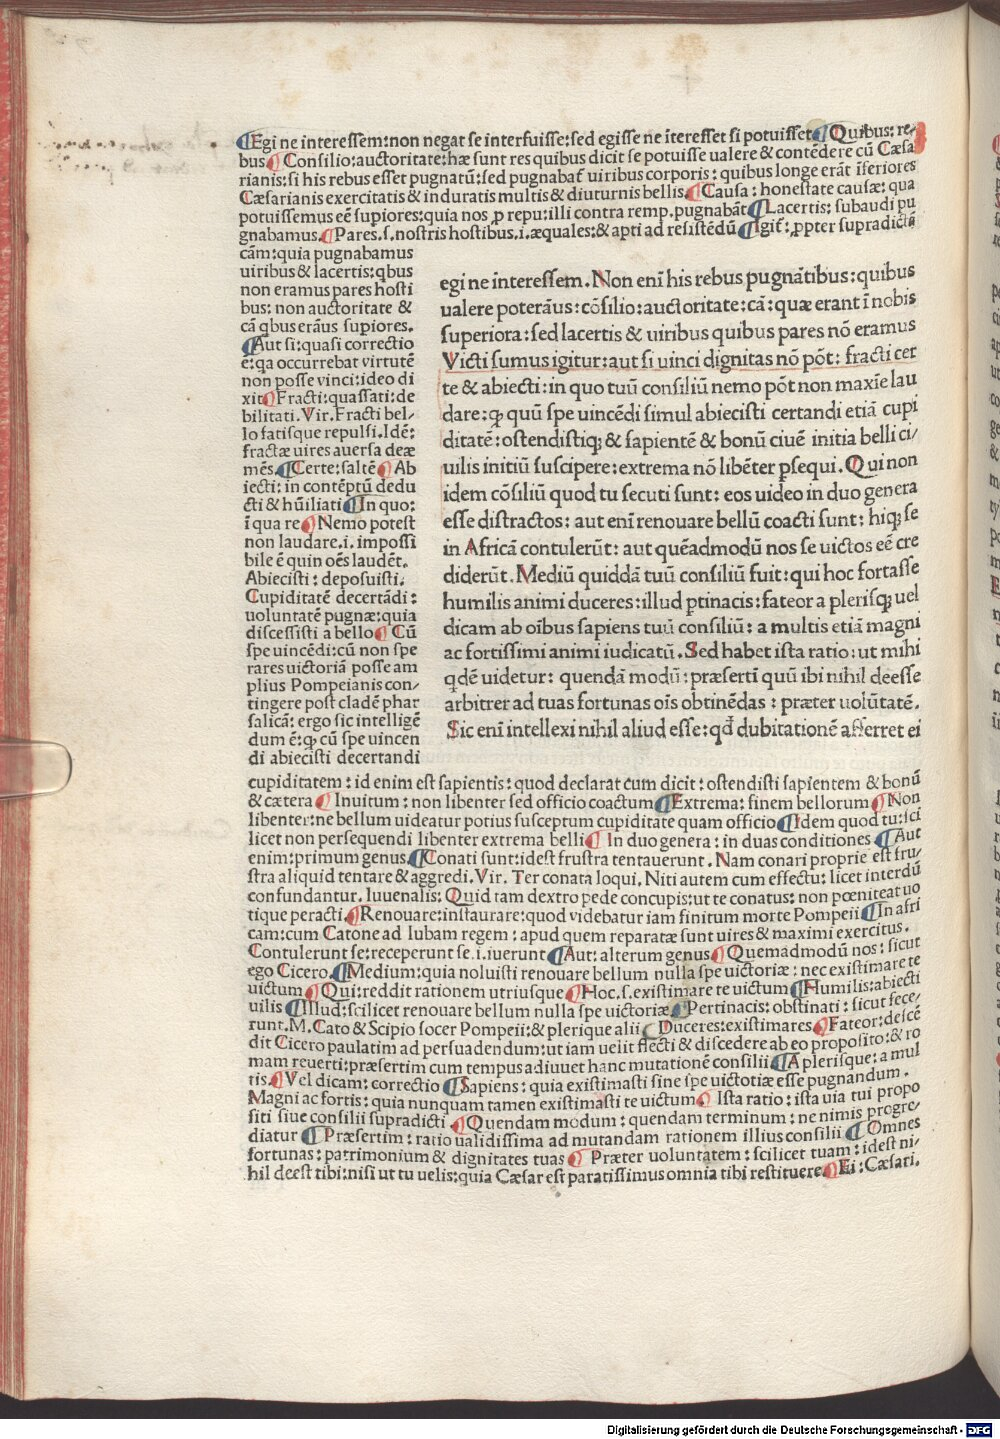 ¶Egi ne interessem:non negat se interfuisse:sed egisse ne īteresset si potuisset¶Quibus: re/
bus¶ Consilio:auctoritate:hæ sunt res quibus dicit se potuisse ualere & contēdere cū Cæsa
rianis:si his rebus esset pugnatū:sed pugnabat̄ uiribus corporis: quibus longe erāt īferiores
Cæsarianis exercitatis & induratis multis & diuturnis bellis.¶Causa: honestate causæ: qua
potuissemus eē supiores:quia nos p repu:illi contra remp.pugnabāt¶Lacertis: subaudi pu
gnabamus.¶Pares.s.nostris hostibus.i.æquales:& apti ad resistēdū¶Igit̄: ppter supradictā
cām:quia pugnabamus
uiribus & lacertis:qbus
non eramus pares hosti
bus: non auctoritate &
cā qbus erāus supiores.
¶Aut si:quasi correctio
ē:qa occurrebat virtutē
non posse vinci:ideo di
xit¶Fracti:quassati:de
bilitati.Vir.Fracti bel/
lo fatisque repulsi.Idē:
fractæ uires auersa deæ
mēs.¶Certe:saltē¶Ab
iecti: in contēptū dedu
cti & hūiliati¶In quo:
ī qua re¶Nemo potest
non laudare.i. impossi
bile ē quin oēs laudēt.
Abiecisti: deposuisti.
Cupiditatē decertādi:
uoluntatē pugnæ:quia
discessisti a bello¶Cū
spe uincēdi:cū non spe
rares uictoriā posse am
plius Pompeianis con/
tingere post cladē phar
salicā: ergo sic intelligē
dum ē:ꝙ cū spe uincen
di abiecisti decertandi
egi ne īnteressem. Non enī his rebus pugnātibus: quibus
ualere poterāus: cōsilio:auctoritate: cā: quæ erant ī nobis
superiora: sed lacertis & uiribus quibus pares nō eramus
Victi sumus igitur:aut si uinci dignitas nō pōt: fracti cer
te & abiecti: in quo tuū consiliū nemo pōt non maxīe lau
dare:ꝙ quū spe uincēdi simul abiecisti certandi etiā cupi
ditatē:ostendistiq; & sapientē & bonū ciuē initia belli ci/
uilis initiū suscipere:extrema nō libēter psequi. Qui non
idem cōsiliū quod tu secuti sunt: eos uideo in duo genera
esse distractos: aut enī renouare bellū coacti sunt: hiq; se
in Africā contulerūt: aut quēadmodū nos se uictos eē cre
diderūt. Mediū quiddā tuū consiliū fuit: qui hoc fortasse
humilis animi duceres:illud ptinacis:fateor a plerisq; uel
dicam ab oībus sapiens tuū consiliū: a multis etiā magni
ac fortissimi animi iudicatū. Sed habet ista ratio: ut mihi
qdē uidetur: quendā modū: præsertī quū ibi nihil deesse
arbitrer ad tuas fortunas oīs obtinēdas: præter uolūtatē.
Sic enī intellexi nihil aliud esse: qd̄ dubitationē afferret ei
cupiditatem: id enim est sapientis: quod declarat cum dicit: ostendisti sapientem & bonū
& cætera¶ Inuitum: non libenter sed officio coactum¶Extrema: finem bellorum¶Non
libenter:ne bellum uideatur potius susceptum cupiditate quam officio¶Idem quod tu:sci
licet non persequendi libenter extrema belli¶ In duo genera: in duas conditiones ¶Aut
enim:primum genus.¶Conati sunt:idest frustra tentauerunt. Nam conari proprie est fru/
stra aliquid tentare & aggredi.Vir. Ter conata loqui. Niti autem cum effectu: licet interdū
confundantur. Iuuenalis: Quid tam dextro pede concupis:ut te conatus: non pœniteat uo
tique peracti.¶Renouare:instaurare:quod videbatur iam finitum morte Pompeii¶In afri
cam:cum Catone ad Iubam regem: apud quem reparatæ sunt uires & maximi exercitus.
Contulerunt se:receperunt se.i.iuerunt¶Aut: alterum genus¶Quemadmodū nos: sicut
ego Cicero.¶Medium:quia noluisti renouare bellum nulla spe uictoriæ: nec existimare te
uictum¶Qui:reddit rationem utriusque¶Hoc.s.existimare te uictum¶Humilis:abiecti
uilis¶Illud:scilicet renouare bellum nulla spe uictoriæ¶Pertinacis: obstinati: sicut fece/
runt.M.Cato & Scipio socer Pompeii:& plerique alii¶Duceres:existimares¶Fateor:descē
dit Cicero paulatim ad persuadendum:ut iam uelit flecti & discedere ab eo proposito:& ro
mam reuerti:præsertim cum tempus adiuuet hanc mutationē consilii¶A plerisque: a mul
tis.¶Vel dicam: correctio¶Sapiens: quia existimasti sine spe uictotiæ esse pugnandum.
Magni ac fortis: quia nunquam tamen existimasti te uictum¶ Ista ratio: ista uia tui propo
siti siue consilii supradicti¶Quendam modum: quendam terminum: ne nimis progre/
diatur¶Præsertim: ratio ualidissima ad mutandam rationem illius consilii¶Omnes
fortunas: patrimonium & dignitates tuas¶ Præter uoluntatem: scilicet tuam: idest ni/
hil deest tibi:nisi ut tu uelis:quia Cæsar est paratissimus omnia tibi restituere¶Ei: Cæsari.
Digitalisierung gefördert durch die Deutsche Forschungsgemeinschaft - DFG